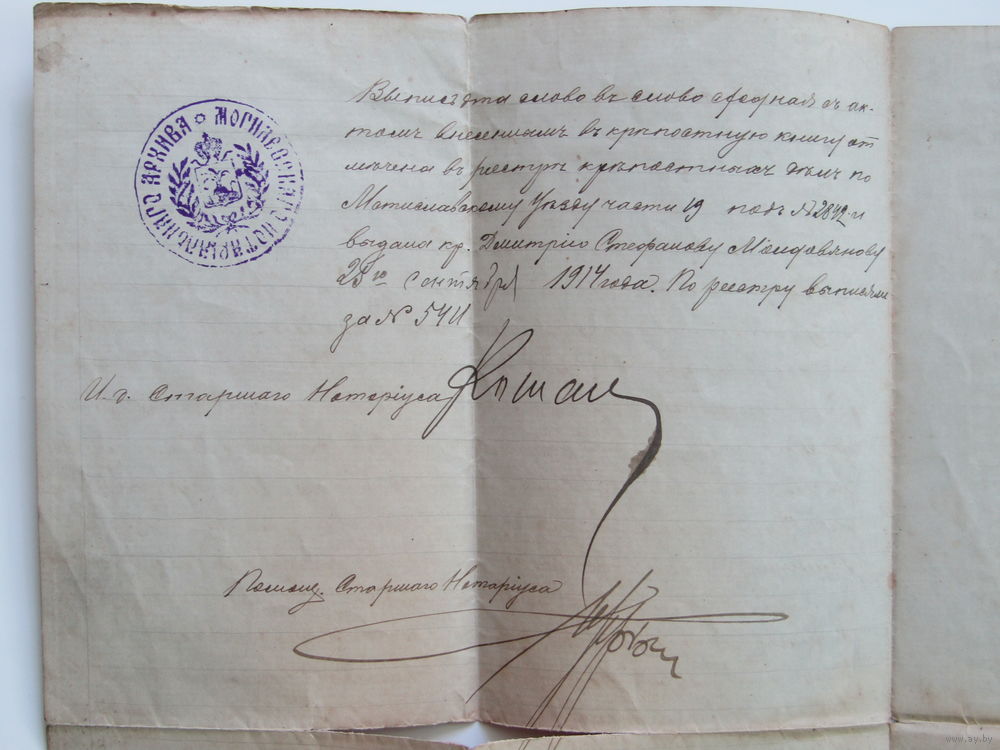 МОГИЛЕВСКАГО НОТАРІАЛЬНАГО АРХИВА
Выпись эта слово въ слово сходная съ ак-
томъ внесеннымъ въ крѣпостную книгу от
мѣчена въ реестрѣ крѣпостныхъ дѣлъ по
Мстиславскому Уѣзду части 19 подъ № 2842 и
выдана кр. Дмитрію Стефанову
25го сентября 1914 года. По реестру выписями
за № 5411
И. д. Старшаго Нотаріуса
Помощ. Старшаго Нотаріуса
www.ay.by